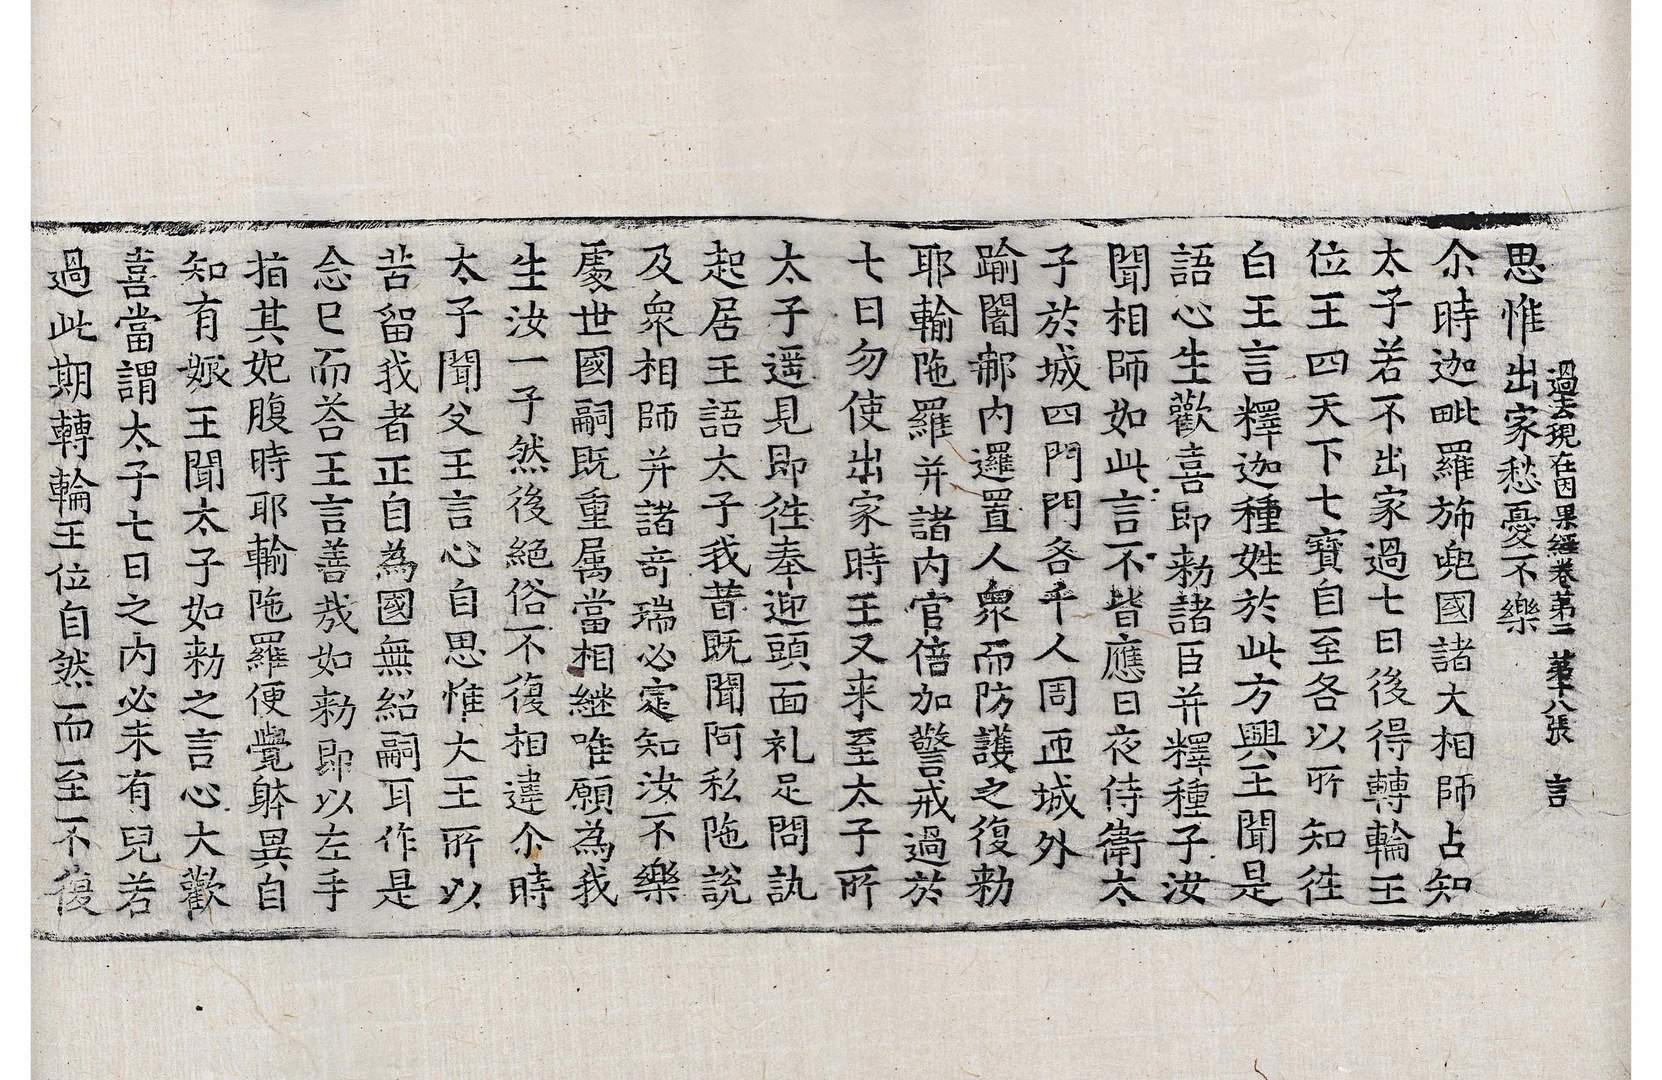 過去現在因果經卷第二　第十八張　言
思惟出家愁憂不樂
尒時迦毗羅斾兜國諸大相師占知
太子若不出家過七日後得轉輪王
位王四天下七寶自至各以所知徃
白王言釋迦種姓於此方興王聞是
語心生歡喜即勑諸臣并釋種子汝
聞相師如此言不皆應日夜侍衛太
子於城四門門各千人周匝城外
踰闍䣛內邏置人衆而防護之復勑
耶輸陁羅并諸内官倍加警戒過於
七日勿使出家時王又来至太子所
太子遥見即徃奉迎頭面礼足問訊
起居王語太子我昔既聞阿私陁說
及衆相師并諸奇瑞必定知汝不樂
處世國嗣既重属當相継唯願為我
生汝一子然後絕俗不復相違尒時
太子聞父王言心自思惟大王所以
苦留我者正自為國無紹嗣耳作是
念已而荅王言善哉如勑即以左手
指其妃腹時耶輸陁羅便覺躰異自
知有娠王聞太子如勑之言心大歡
喜當謂太子七日之内必未有兒若
過此期轉輪王位自然而至不復